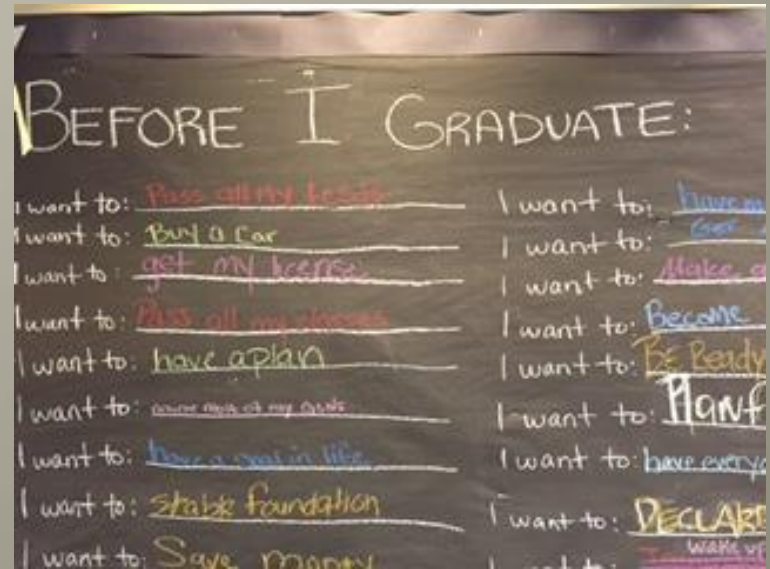 BEFORE I GRADUATE:
I want to: Pass all my
I want to: Buy a car
I want to: get my license
I want to: Pass all my classes
I want to: have a plan
I want to: most of my goals
I want to: have a goal in life
I want to: stable foundation
I want to: Save money
I want to: have m
I want to: Get
I want to: Make a
I want to: Become
I want to: Be Ready
I want to: Plan f
I want to: have everyo
I want to: DECLARE
wake up
I want to: